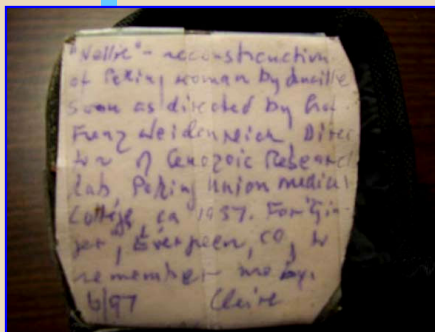 "Nellie" - reconstruction
of Peking woman by Lucille
Swan as directed by
Franz Weidenreich, Direc
tor of Cenozoic Research
Lab Peking Union Medical
College, ca 1937. For Gin-
ger, Evergreen, CO, to
remember me by.
6/97 Claire